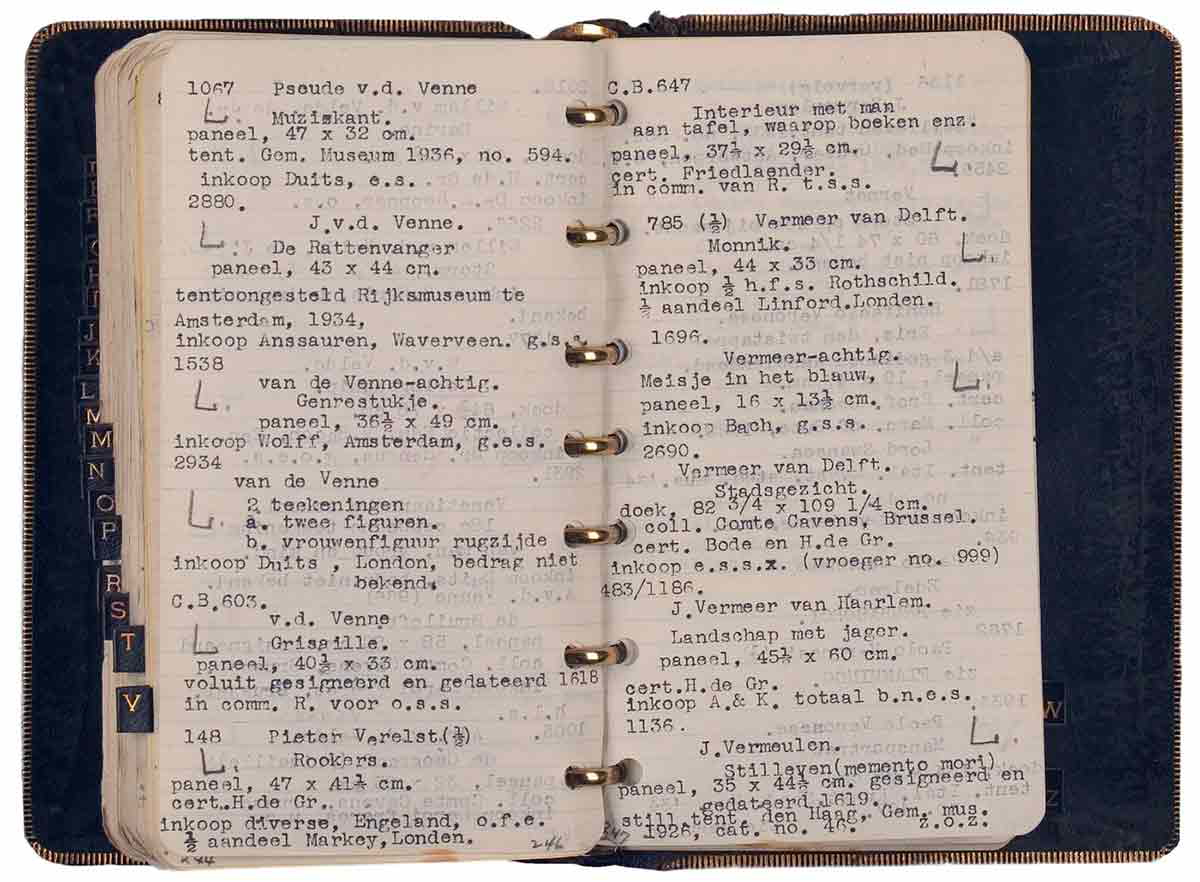 1067 Pseude v.d. Venne
L. Muziskant.
paneel, 47 x 32 cm.
tent. Gem. Museum 1936, no. 594.
inkoop Duits, e.s.
2880.
J.v.d. Venne.
L. De Rattenvanger
paneel, 43 x 44 cm.
tentoongesteld Rijksmuseum te
Amsterdam, 1934,
inkoop Anssauren, Waverveen. g.s.s.
1538
van de Venne-achtig.
L. Genrestukje.
paneel, 36½ x 49 cm.
inkoop Wolff, Amsterdam, g.e.s.
2934
van de Venne
L. 2 teekeningen
a. twee figuren.
b. vrouwenfiguur rugzijde
inkoop Duits , London, bedrag niet
bekend.
C.B.603.
v.d. Venne
L. Grisaille.
paneel, 40½ x 33 cm.
voluit gesigneerd en gedateerd 1618
in comm. R. voor o.s.s.
148 Pieter Verelst.(½)
L. Rookers.
paneel, 47 x 41½ cm.
cert.H.de Gr.
inkoop diverse, Engeland, o.f.e.
½ aandeel Markey,Londen.
246
C.B.647
Interieur met man
aan tafel, waarop boeken enz.
paneel, 37½ x 29½ cm. L.
cert. Friedlaender.
in comm. van R. t.s.s.
785 (½) Vermeer van Delft.
Monnik. L.
paneel, 44 x 33 cm.
inkoop ½ h.f.s. Rothschild.
½ aandeel Linford.Londen.
1696.
Vermeer-achtig.
Meisje in het blauw, L.
paneel, 16 x 13½ cm.
inkoop Bach, g.s.s.
2690.
Vermeer van Delft.
Stadsgezicht.
doek, 82 3/4 x 109 1/4 cm.
coll. Comte Cavens, Brussel.
cert. Bode en H.de Gr.
inkoop e.s.s.x. (vroeger no. 999)
483/1186.
J.Vermeer van Haarlem.
Landschap met jager.
paneel, 45½ x 60 cm.
cert.H.de Gr.
inkoop A.& K. totaal b.n.e.s.
1136. L.
J.Vermeulen.
Stilleven(memento mori)
paneel, 35 x 44½ cm. gesigneerd en
gedateerd 1619.
still.tent. den Haag, Gem. mus.
1926, cat. no. 46. z.o.z.
247
J
K
L
M
M
N
O
P
R
S
T
V
W
Z